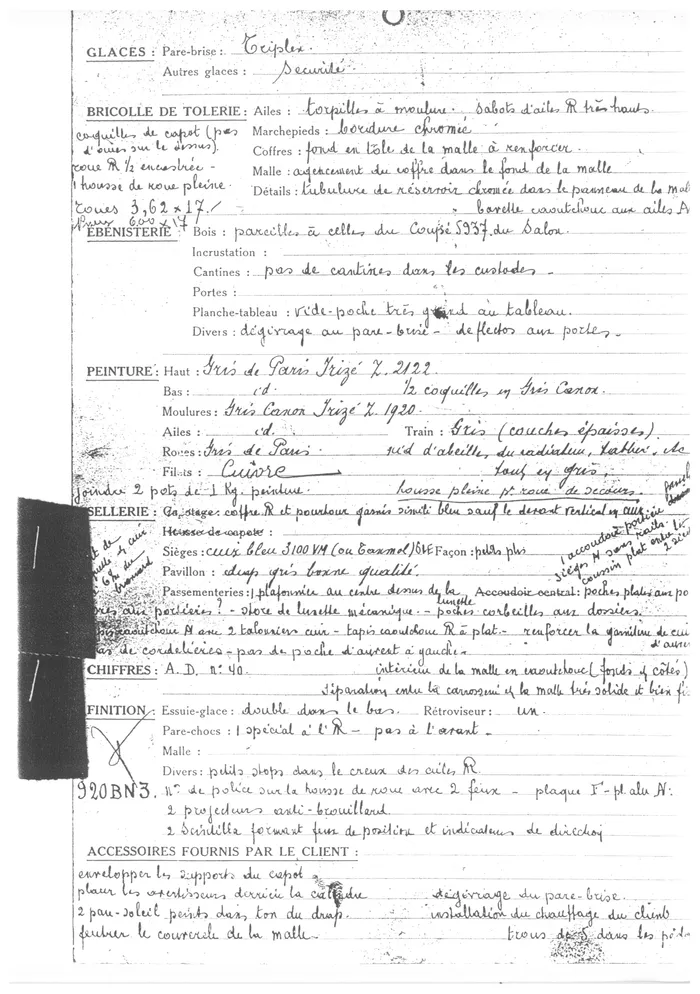 GLACES : Pare-brise : Triplex.
Autres glaces : Securité.
BRICOLLE DE TOLERIE : Ailes : torpilles à moulure. Sabots d'ailes R très hauts.
coquilles de capot (pas Marchepieds : bordure chromée
d'ouïes sur le dessus). Coffres : fond en tôle de la malle à renforcer.
roue R 1/2 encastrée - Malle : agencement du coffre dans le fond de la malle
1 housse de roue pleine. Détails : tubulure de réservoir chromée dans le panneau de la mal
roues 3,62 x 17./ bavette caoutchouc aux ailes A
Pneus 600 x 17
ÉBÉNISTERIE : Bois : pareilles à celles du Coupé 5937 du Salon.
Incrustation :
Cantines : pas de cantines dans les custodes -
Portes :
Planche-tableau : vide-poche très grand au tableau.
Divers : dégivrage au pare-brise - deflectos aux portes -
PEINTURE : Haut : Gris de Paris Irizé Z. 2122.
Bas : id. 1/2 coquilles en Gris Canon.
Moulures : Gris Canon Irizé Z 1920.
Ailes : id. Train : Gris (couches épaisses).
Roues : Gris de Paris. nid d'abeilles du radiateur, tablier, etc
Filets : Cuivre tout en gris,
joindre 2 pots de 1 Kg. peinture. housse pleine pr roue de secours.
SELLERIE : Capotage : coffre R et pourtour garnis simili bleu sauf le devant vertical en cuir
Housse de capote :
1 accoudoir portière
sièges N sans
coussin plat entre les
Sièges : cuir bleu 3100 VM (ou Earmol) Façon : petits plis
Pavillon : drap gris bonne qualité.
Passementeries : 1 plafonnier au centre dessus de la lunette Accoudoir central : poches plates aux po
aux portières ? - store de lunette mécanique - poches corbeilles aux dossiers.
tapis caoutchouc N avec 2 talonniers cuir - tapis caoutchouc R à plat - renforcer la garniture de cui
pas de cordelières - pas de poche d'auvent à gauche - d'auvent
CHIFFRES : A. D. n° 40. intérieur de la malle en caoutchouc (fonds et côtés)
séparation entre la carrosserie et la malle très solide et bien fi
FINITION : Essuie-glace : double dans le bas. Rétroviseur : un.
Pare-chocs : 1 spécial à l'R - pas à l'avant.
Malle :
Divers : petits stops dans le creux des ailes R.
920BN3. n° de police sur la housse de roue avec 2 feux - plaque F - pt. alu N :
2 projecteurs anti-brouillard
2 Scintilla formant feux de position et indicateurs de direction
ACCESSOIRES FOURNIS PAR LE CLIENT :
envelopper les supports du capot
placer les avertisseurs derrière la calandre dégivrage du pare-brise.
2 pare-soleil peints dans ton du drap. installation du chauffage du client
feutrer le couvercle de la malle - trous de 5 dans les péda